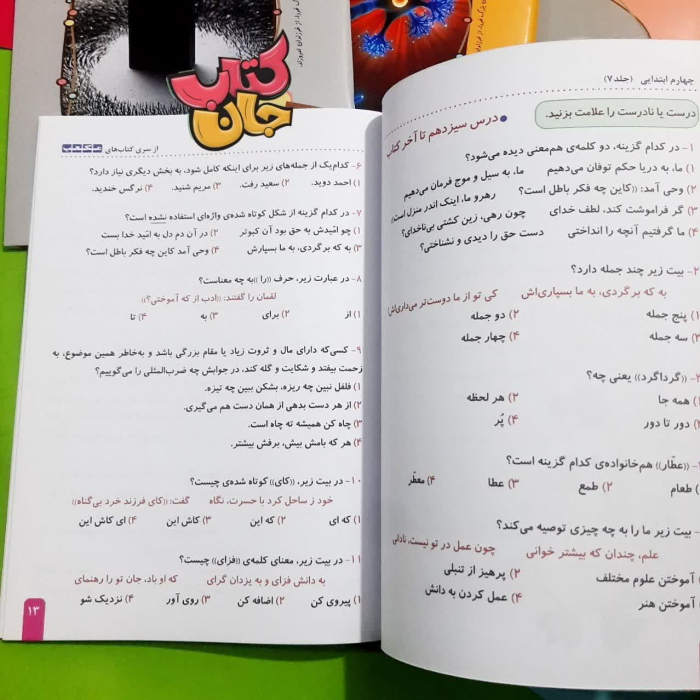 چهارم ابتدایی (جلد ۷)
درست یا نادرست را علامت بزنید.
درس سیزدهم تا آخر کتاب
۱- در کدام گزینه، دو کلمه‌ی هم‌معنی دیده می‌شود؟
۱) ما، به دریا حکم توفان می‌دهیم ما، به سیل و موج فرمان می‌دهیم
۲) وحی آمد: ((کاین چه فکر باطل است؟ رهرو ما، اینک اندر منزل است))
۳) گر فراموشت کند، لطف خدای چون رهی، زین کشتی بی‌ناخدای؟
۴) ما گرفتیم آنچه را انداختی دست حق را دیدی و نشناختی؟
۲- بیت زیر چند جمله دارد؟
به که برگردی، به ما بسپاری‌اش کی تو از ما دوست‌تر می‌داری‌اش؟
۱) پنج جمله ۲) دو جمله
۳) سه جمله ۴) چهار جمله
((گرداگرد)) یعنی چه؟
۱) همه جا ۲) هر لحظه
دور تا دور ۴) پُر
((عطّار)) هم‌خانواده‌ی کدام گزینه است؟
طعام ۲) طمع ۳) عطا ۴) معطّر
بیت زیر ما را به چه چیزی توصیه می‌کند؟
علم، چندان که بیشتر خوانی چون عمل در تو نیست، نادانی
آموختن علوم مختلف ۲) پرهیز از تنبلی
آموختن هنر ۴) عمل کردن به دانش
کتاب جان
از سری کتاب‌های
۶- کدام‌یک از جمله‌های زیر برای اینکه کامل شود، به بخش دیگری نیاز دارد؟
۱) احمد دوید. ۲) سعید رفت. ۳) مریم شنید. ۴) نرگس خندید.
۷- در کدام گزینه از شکل کوتاه شده‌ی واژه‌ای استفاده نشده است؟
۱) چو امّیدش به حق بود آن کبوتر ۲) در آن دم دل به امّید خدا بست
۳) به که برگردی، به ما بسپارش ۴) وحی آمد کاین چه فکر باطل است؟
۸- در عبارت زیر، حرف ((را)) به چه معناست؟
لقمان را گفتند: ((ادب از که آموختی؟))
۱) از ۲) برای ۳) به ۴) تا
۹- کسی‌که دارای مال و ثروت زیاد یا مقام بزرگی باشد و به‌خاطر همین موضوع، به
زحمت بیفتد و شکایت و گله کند، در جوابش چه ضرب‌المثلی را می‌گوییم؟
۱) فلفل نبین چه ریزه، بشکن ببین چه تیزه.
۲) از هر دست بدهی از همان دست هم می‌گیری.
۳) چاه کن همیشه ته چاه است.
۴) هر که بامش بیش، برفش بیشتر.
۱۰- در بیت زیر، ((کای)) کوتاه شده‌ی چیست؟
خود ز ساحل کرد با حسرت، نگاه گفت: ((کای فرزند خرد بی‌گناه))
۱) که ای ۲) که این ۳) کاش این ۴) ای کاش این
۱۱- در بیت زیر، معنای کلمه‌ی ((فزای)) چیست؟
به دانش فزای و به یزدان گرای که او باد، جان تو را رهنمای
۱) پیروی کن ۲) اضافه کن ۳) روی آور ۴) نزدیک شو
۱۳